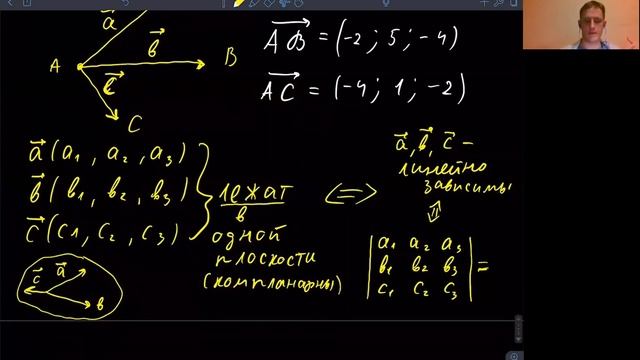 a⃗
A b⃗ B
c⃗
C
A⃗B⃗ = (-2; 5; -4)
A⃗C⃗ = (-4; 1; -2)
a⃗ (a₁, a₂, a₃)
b⃗ (b₁, b₂, b₃)
c⃗ (c₁, c₂, c₃)
лежат
в
одной
плоскости
(компланарны)
⇔
a⃗, b⃗, c⃗ –
линейно
зависимы
⇕
|a₁ a₂ a₃|
|b₁ b₂ b₃| =
|c₁ c₂ c₃|
c⃗ a⃗
b